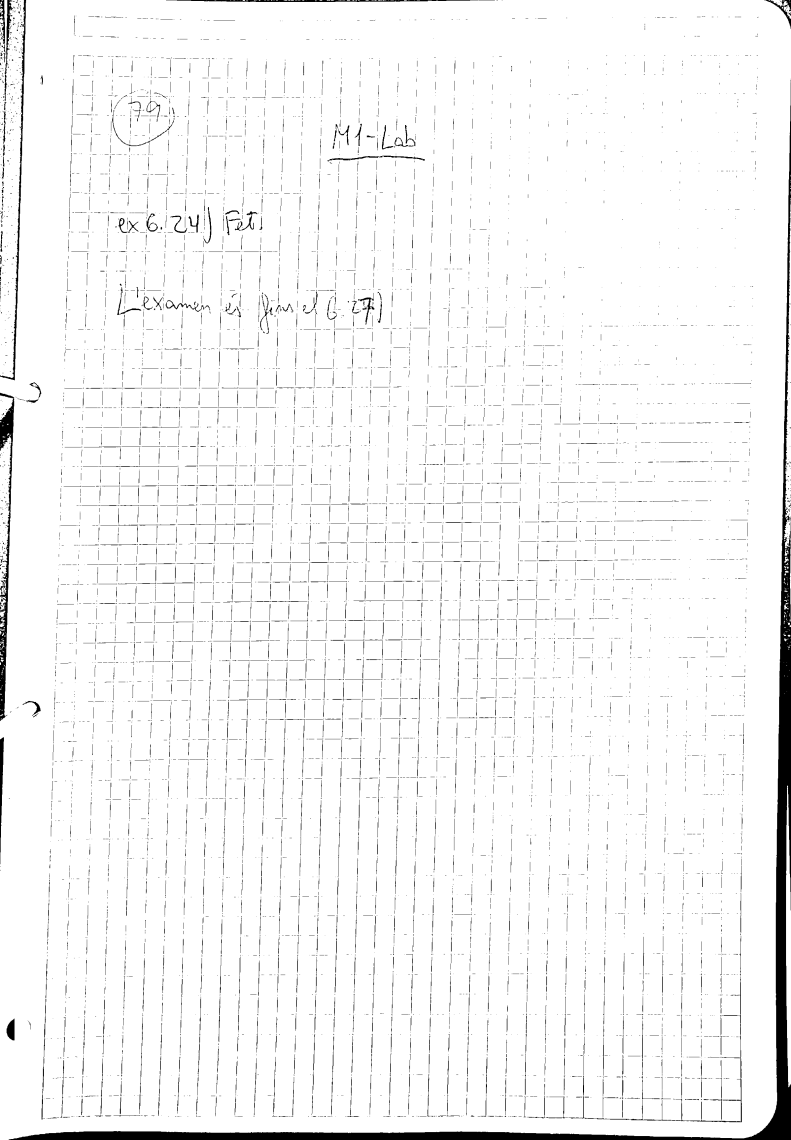 79
M1-Lab
ex 6.24) Fet.
L'examen és fins el 6.27)